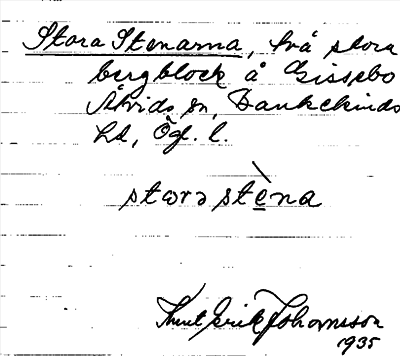 Stora Stenarna, två stora
bergblock å Gissebo
Åtvids sn, Bankekinds
hd, Ög. l.
stɷrə stèna
Knut Erik Johansson
1935